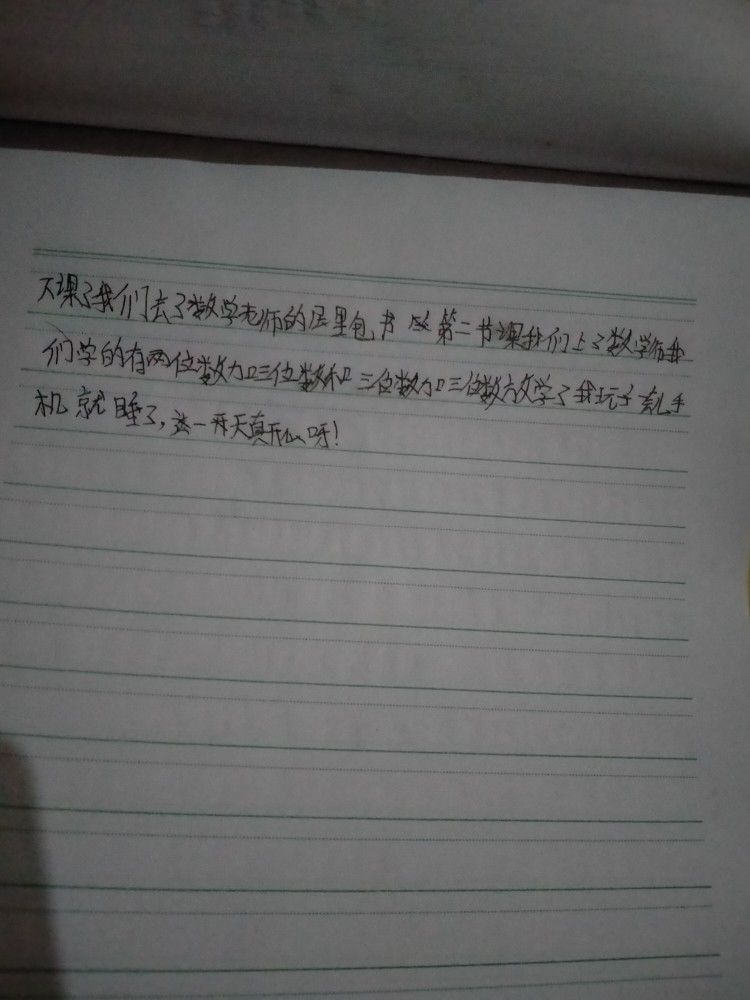 下课了我们去了数学老师的屋里包书 第二节课我们上了数学 我
们学的有两位数加三位数和三位数加三位数放学了我玩了会儿手
机就睡了,这一天真开心呀!